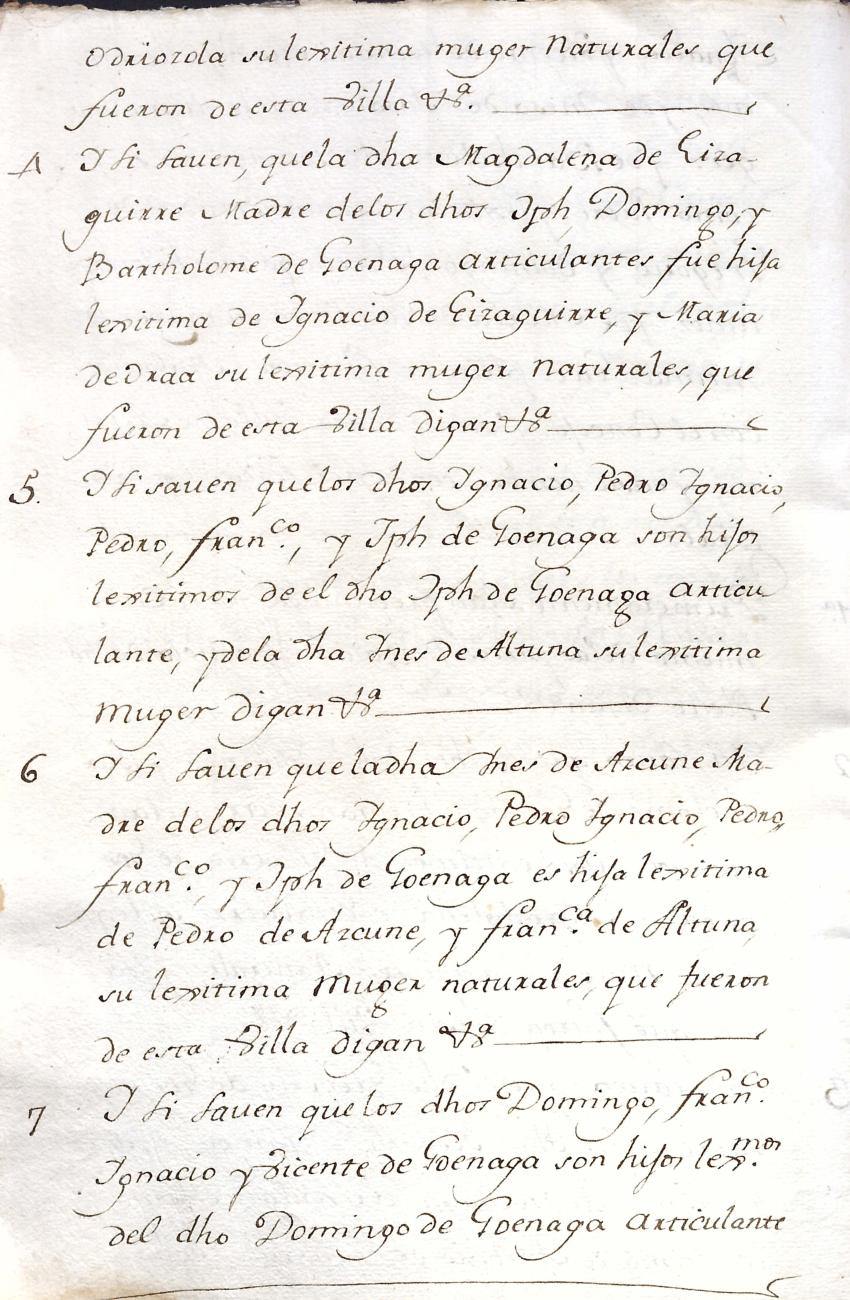 Odriozola su lexitima muger naturales que
fueron de esta Villa &ª.
4 Y si saven, que la dha Magdalena de Eiza-
guirre Madre de los dhos Jph, Domingo, y
Bartholome de Goenaga articulantes fue hija
lexitima de Ignacio de Eizaguirre, y Maria
de Odriozola su lexitima muger naturales, que
fueron de esta Villa digan &ª
5. Y si saven que los dhos Ygnacio, Pedro Ygnacio,
Pedro, franco., y Jph de Goenaga son hijos
lexitimos de el dho Jph de Goenaga articu
lante, y de la dha Ynes de Altuna su lexitima
muger digan &ª
6 Y si saven que la dha Ynes de Azcune Ma-
dre de los dhos Ygnacio, Pedro Ygnacio, Pedro,
franco., y Jph de Goenaga es hija lexitima
de Pedro de Azcune, y franca. de Altuna,
su lexitima Muger naturales, que fueron
de esta Villa digan &ª
7 Y si saven que los dhos Domingo, franco.
Ygnacio y Vicente de Goenaga son hijos lexmos.
del dho Domingo de Goenaga articulante